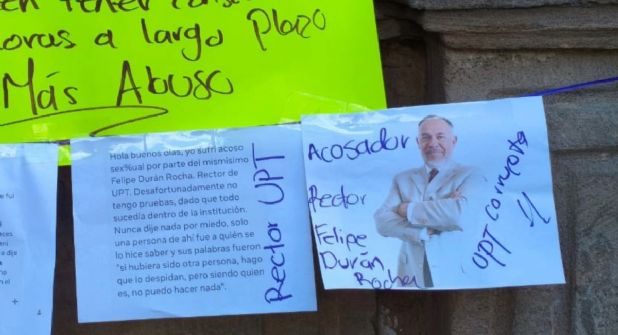 tener
oras a largo plazo
Más Abuso
Hola buenos días, yo sufrí acoso
sex%ual por parte del mismísimo
Felipe Durán Rocha. Rector de
UPT. Desafortunadamente no
tengo pruebas, dado que todo
sucedía dentro de la institución.
Nunca dije nada por miedo, solo
una persona de ahí fue a quién se
lo hice saber y sus palabras fueron
"si hubiera sido otra persona, hago
que lo despidan, pero siendo quien
es, no puedo hacer nada".
Rector UPT
Acosador
Rector
Felipe
Durán
Rocha
UPT corrupta